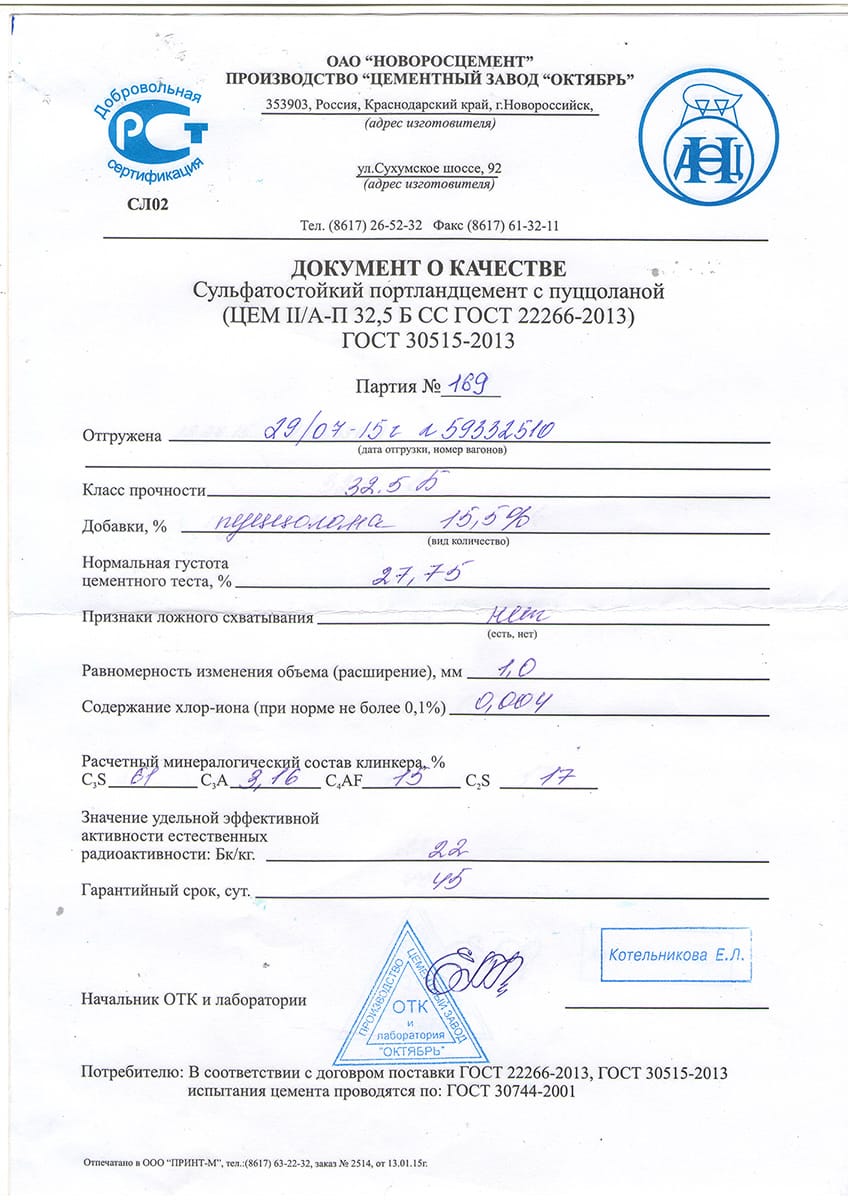 ОАО “НОВОРОСЦЕМЕНТ”
ПРОИЗВОДСТВО “ЦЕМЕНТНЫЙ ЗАВОД “ОКТЯБРЬ”
353903, Россия, Краснодарский край, г.Новороссийск,
(адрес изготовителя)
ул.Сухумское шоссе, 92
(адрес изготовителя)
Добровольная
РСТ
сертификация
СЛ02
АОЦ
Н
Тел. (8617) 26-52-32 Факс (8617) 61-32-11
ДОКУМЕНТ О КАЧЕСТВЕ
Сульфатостойкий портландцемент с пуццоланой
(ЦЕМ II/А-П 32,5 Б СС ГОСТ 22266-2013)
ГОСТ 30515-2013
Партия № 169
Отгружена 29/07-15г 59332510
(дата отгрузки, номер вагонов)
Класс прочности 32.5 Б
Добавки, % пуццолана 15,5%
(вид количество)
Нормальная густота
цементного теста, % 27,75
Признаки ложного схватывания нет
(есть, нет)
Равномерность изменения объема (расширение), мм 1,0
Содержание хлор-иона (при норме не более 0,1%) 0,004
Расчетный минералогический состав клинкера, %
C₃S 61 C₃A 3,16 C₄AF 15 C₂S 17
Значение удельной эффективной
активности естественных
радиоактивности: Бк/кг. 22
Гарантийный срок, сут. 45
Котельникова Е.Л.
Начальник ОТК и лаборатории
ПРОИЗВОДСТВО
ЦЕМЕНТНЫЙ ЗАВОД
ОТК
и
лаборатория
"ОКТЯБРЬ"
Потребителю: В соответствии с договром поставки ГОСТ 22266-2013, ГОСТ 30515-2013
испытания цемента проводятся по: ГОСТ 30744-2001
Отпечатано в ООО “ПРИНТ-М”, тел.:(8617) 63-22-32, заказ № 2514, от 13.01.15г.